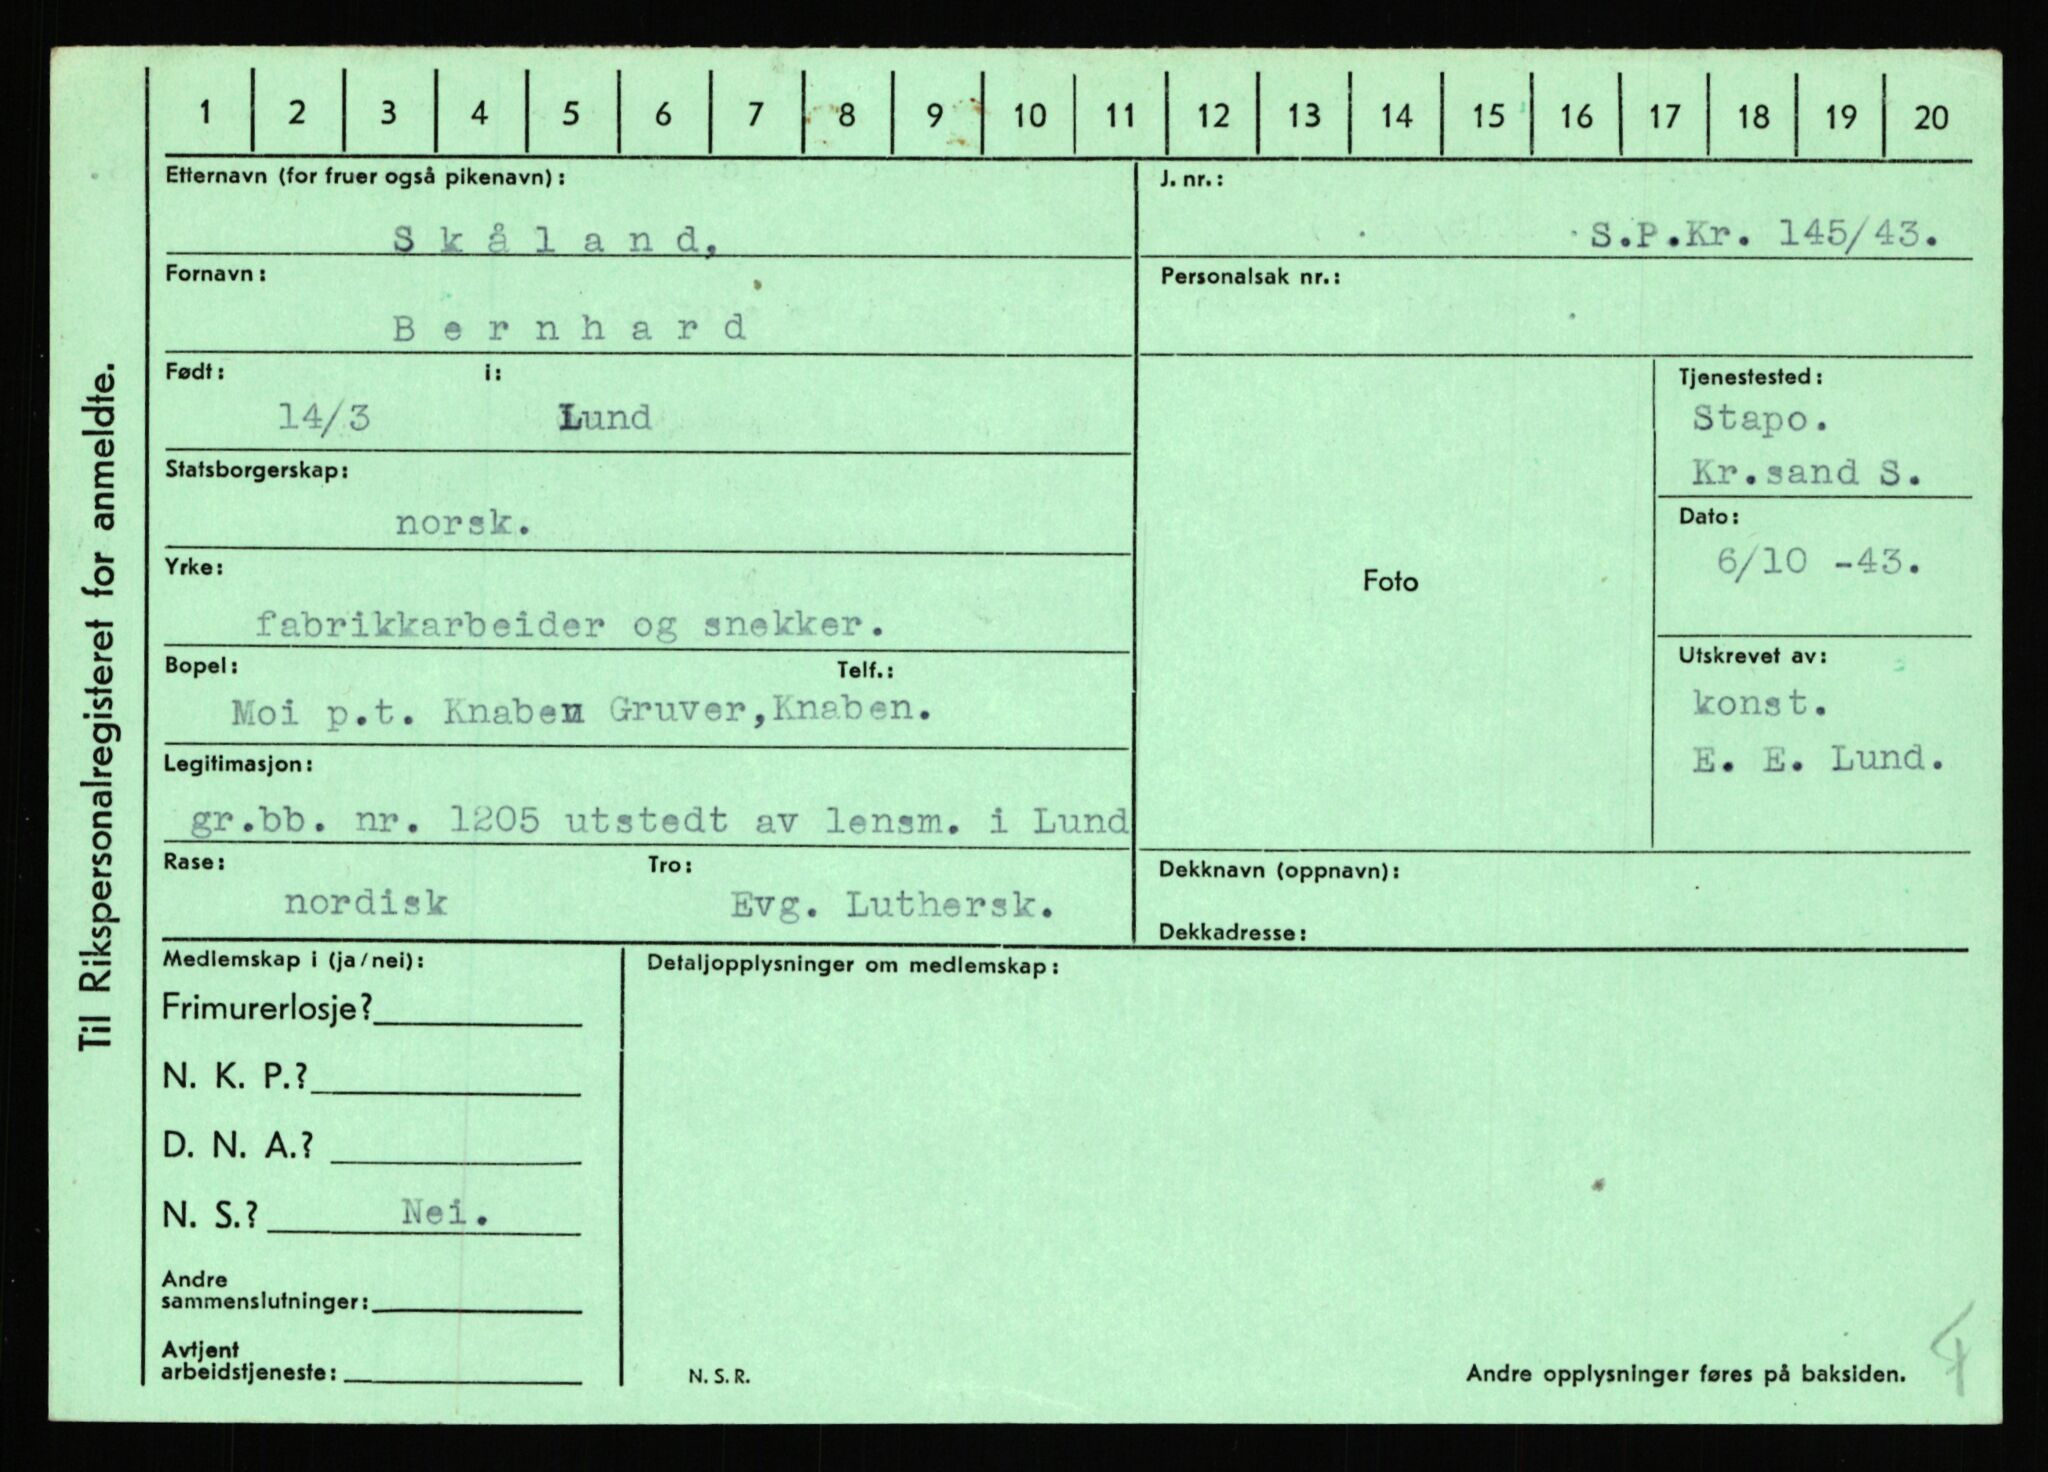 Til Rikspersonalregisteret for anmeldte.
1 2 3 4 5 6 7 8 9 10 11 12 13 14 15 16 17 18 19 20
Etternavn (for fruer også pikenavn):
Skåland,
Fornavn:
Bernhard
Født: i:
14/3 Lund
Statsborgerskap:
norsk.
Yrke:
fabrikkarbeider og snekker.
Bopel: Telf.:
Moi p.t. Knaben Gruver,Knaben.
Legitimasjon:
gr.bb. nr. 1205 utstedt av lensm. i Lund
Rase: Tro:
nordisk Evg. Luthersk.
J. nr.:
S.P.Kr. 145/43.
Personalsak nr.:
Foto
Tjenestested:
Stapo.
Kr.sand S.
Dato:
6/10 -43.
Utskrevet av:
konst.
E. E. Lund.
Dekknavn (oppnavn):
Dekkadresse:
Medlemskap i (ja/nei):
Frimurerlosje?
N. K. P.?
D. N. A.?
N. S.? Nei.
Andre
sammenslutninger:
Avtjent
arbeidstjeneste:
Detaljopplysninger om medlemskap:
N. S. R.
Andre opplysninger føres på baksiden.